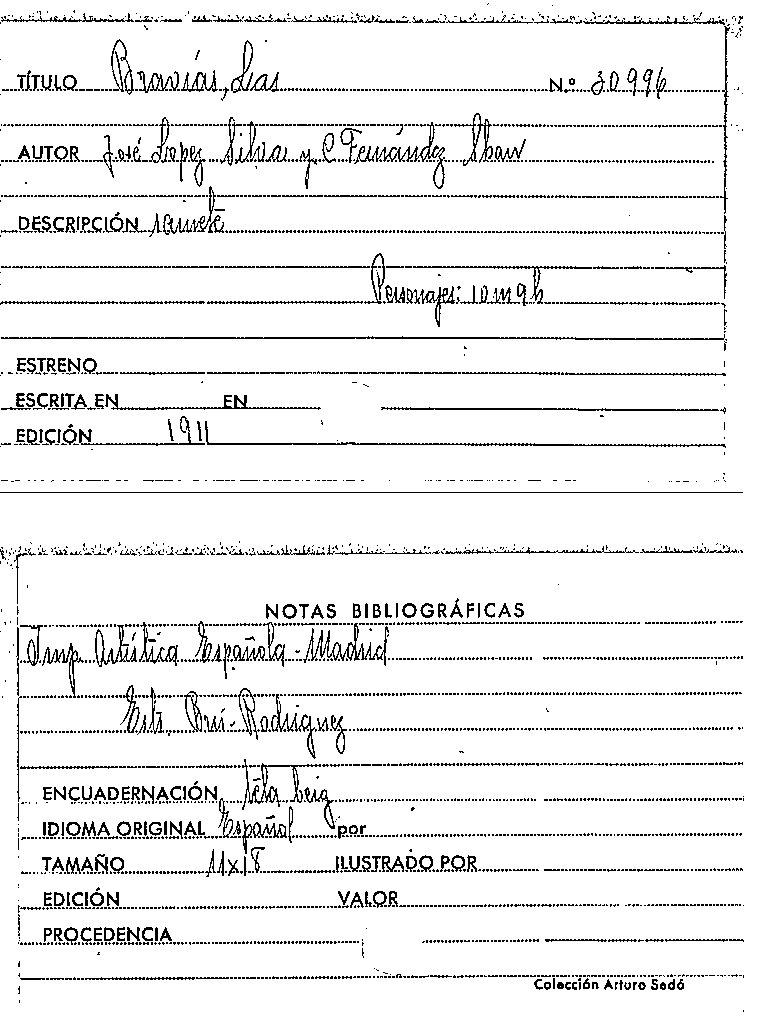 TÍTULO Bravías, Las N.º 30996
AUTOR José Lopez Silva y C Fernández Shaw
DESCRIPCIÓN sainete
Personajes: 10 m 9 h
ESTRENO
ESCRITA EN EN
EDICIÓN 1911
NOTAS BIBLIOGRÁFICAS
Imp. Artística Española - Madrid
Bru - Rodriguez
ENCUADERNACIÓN tela beig
IDIOMA ORIGINAL Español por
TAMAÑO 11x18 ILUSTRADO POR
EDICIÓN VALOR
PROCEDENCIA
Colección Arturo Sedó